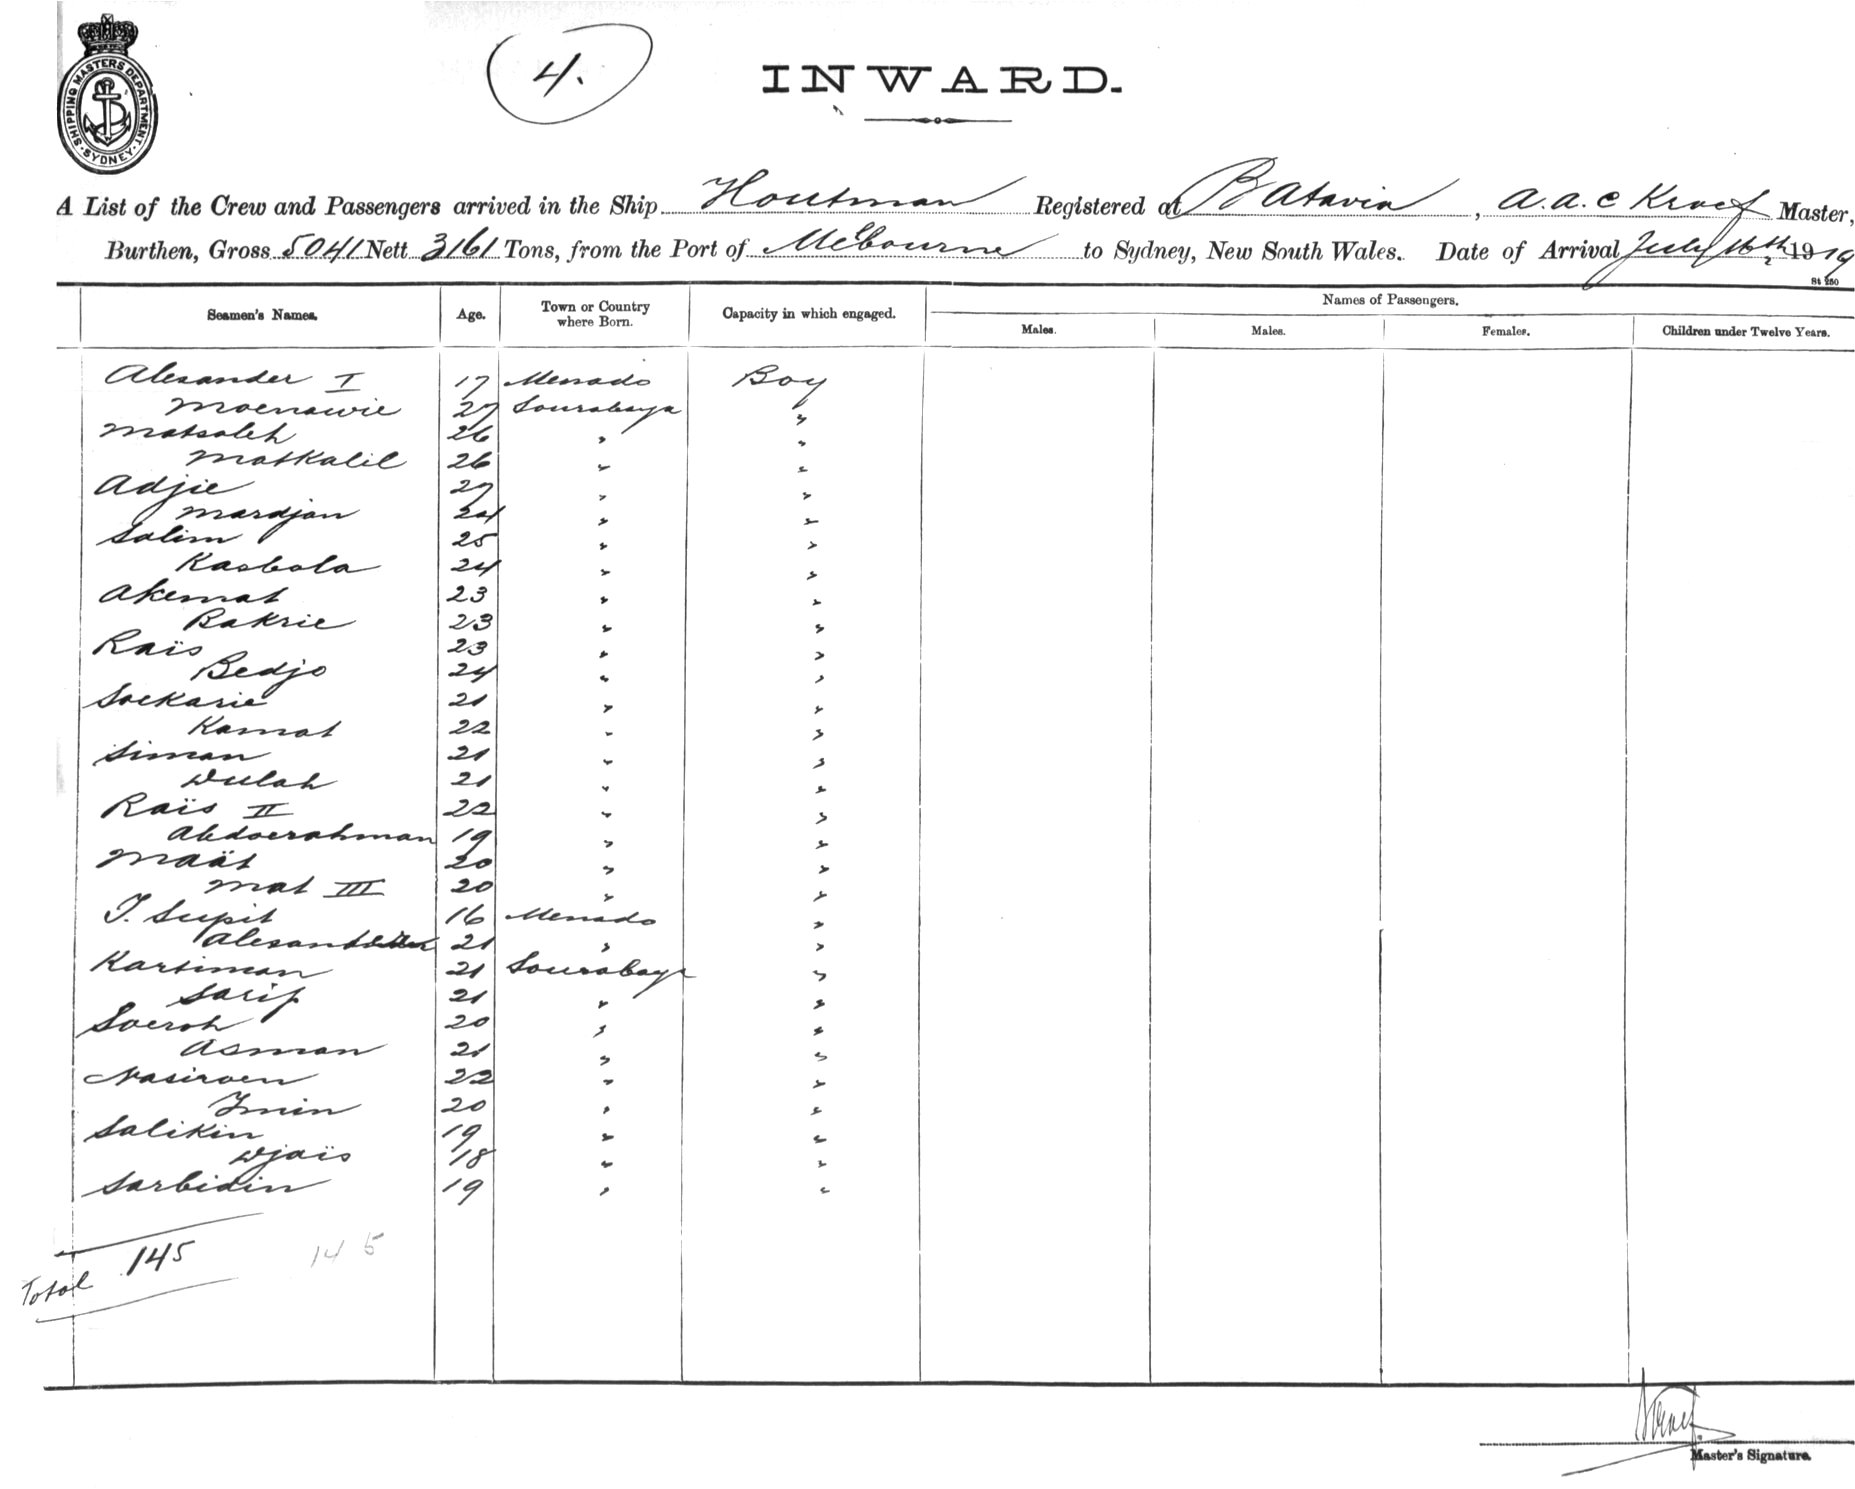 SHIPPING MASTERS DEPARTMENT. SYDNEY.
4.
INWARD.
A List of the Crew and Passengers arrived in the Ship Houtman Registered at Batavia, A.A.C Kroef Master,
Burthen, Gross 5041 Nett 3161 Tons, from the Port of Melbourne to Sydney, New South Wales. Date of Arrival July 16th 1919
St 250
Seamen's Names. Age. Town or Country where Born. Capacity in which engaged. Names of Passengers.
Males. Males. Females. Children under Twelve Years.
Alexander I 17 Menado Boy
Moenawie 27 Sourabaya "
Matsaleh 26 " "
Matkalil 26 " "
Adjie 27 " "
Mardjan 24 " "
Salim 25 " "
Kasbola 24 " "
Akemat 23 " "
Bakrie 23 " "
Raïs 23 " "
Bedjo 24 " "
Soekarie 21 " "
Kamat 22 " "
Siman 21 " "
Dulah 21 " "
Raïs II 22 " "
Abdoerahman 19 " "
Maät 20 " "
Mat III 20 " "
Supit 16 Menado "
21 " "
Kartiman 21 Sourabaya "
Sarip 21 " "
Soeroh 20 " "
Asman 21 " "
Nasiroen 22 " "
Imin 20 " "
Salikin 19 " "
Djaïs 18 " "
Sarbidin 19 " "
Total 145 145
Kroef
Master's Signature.